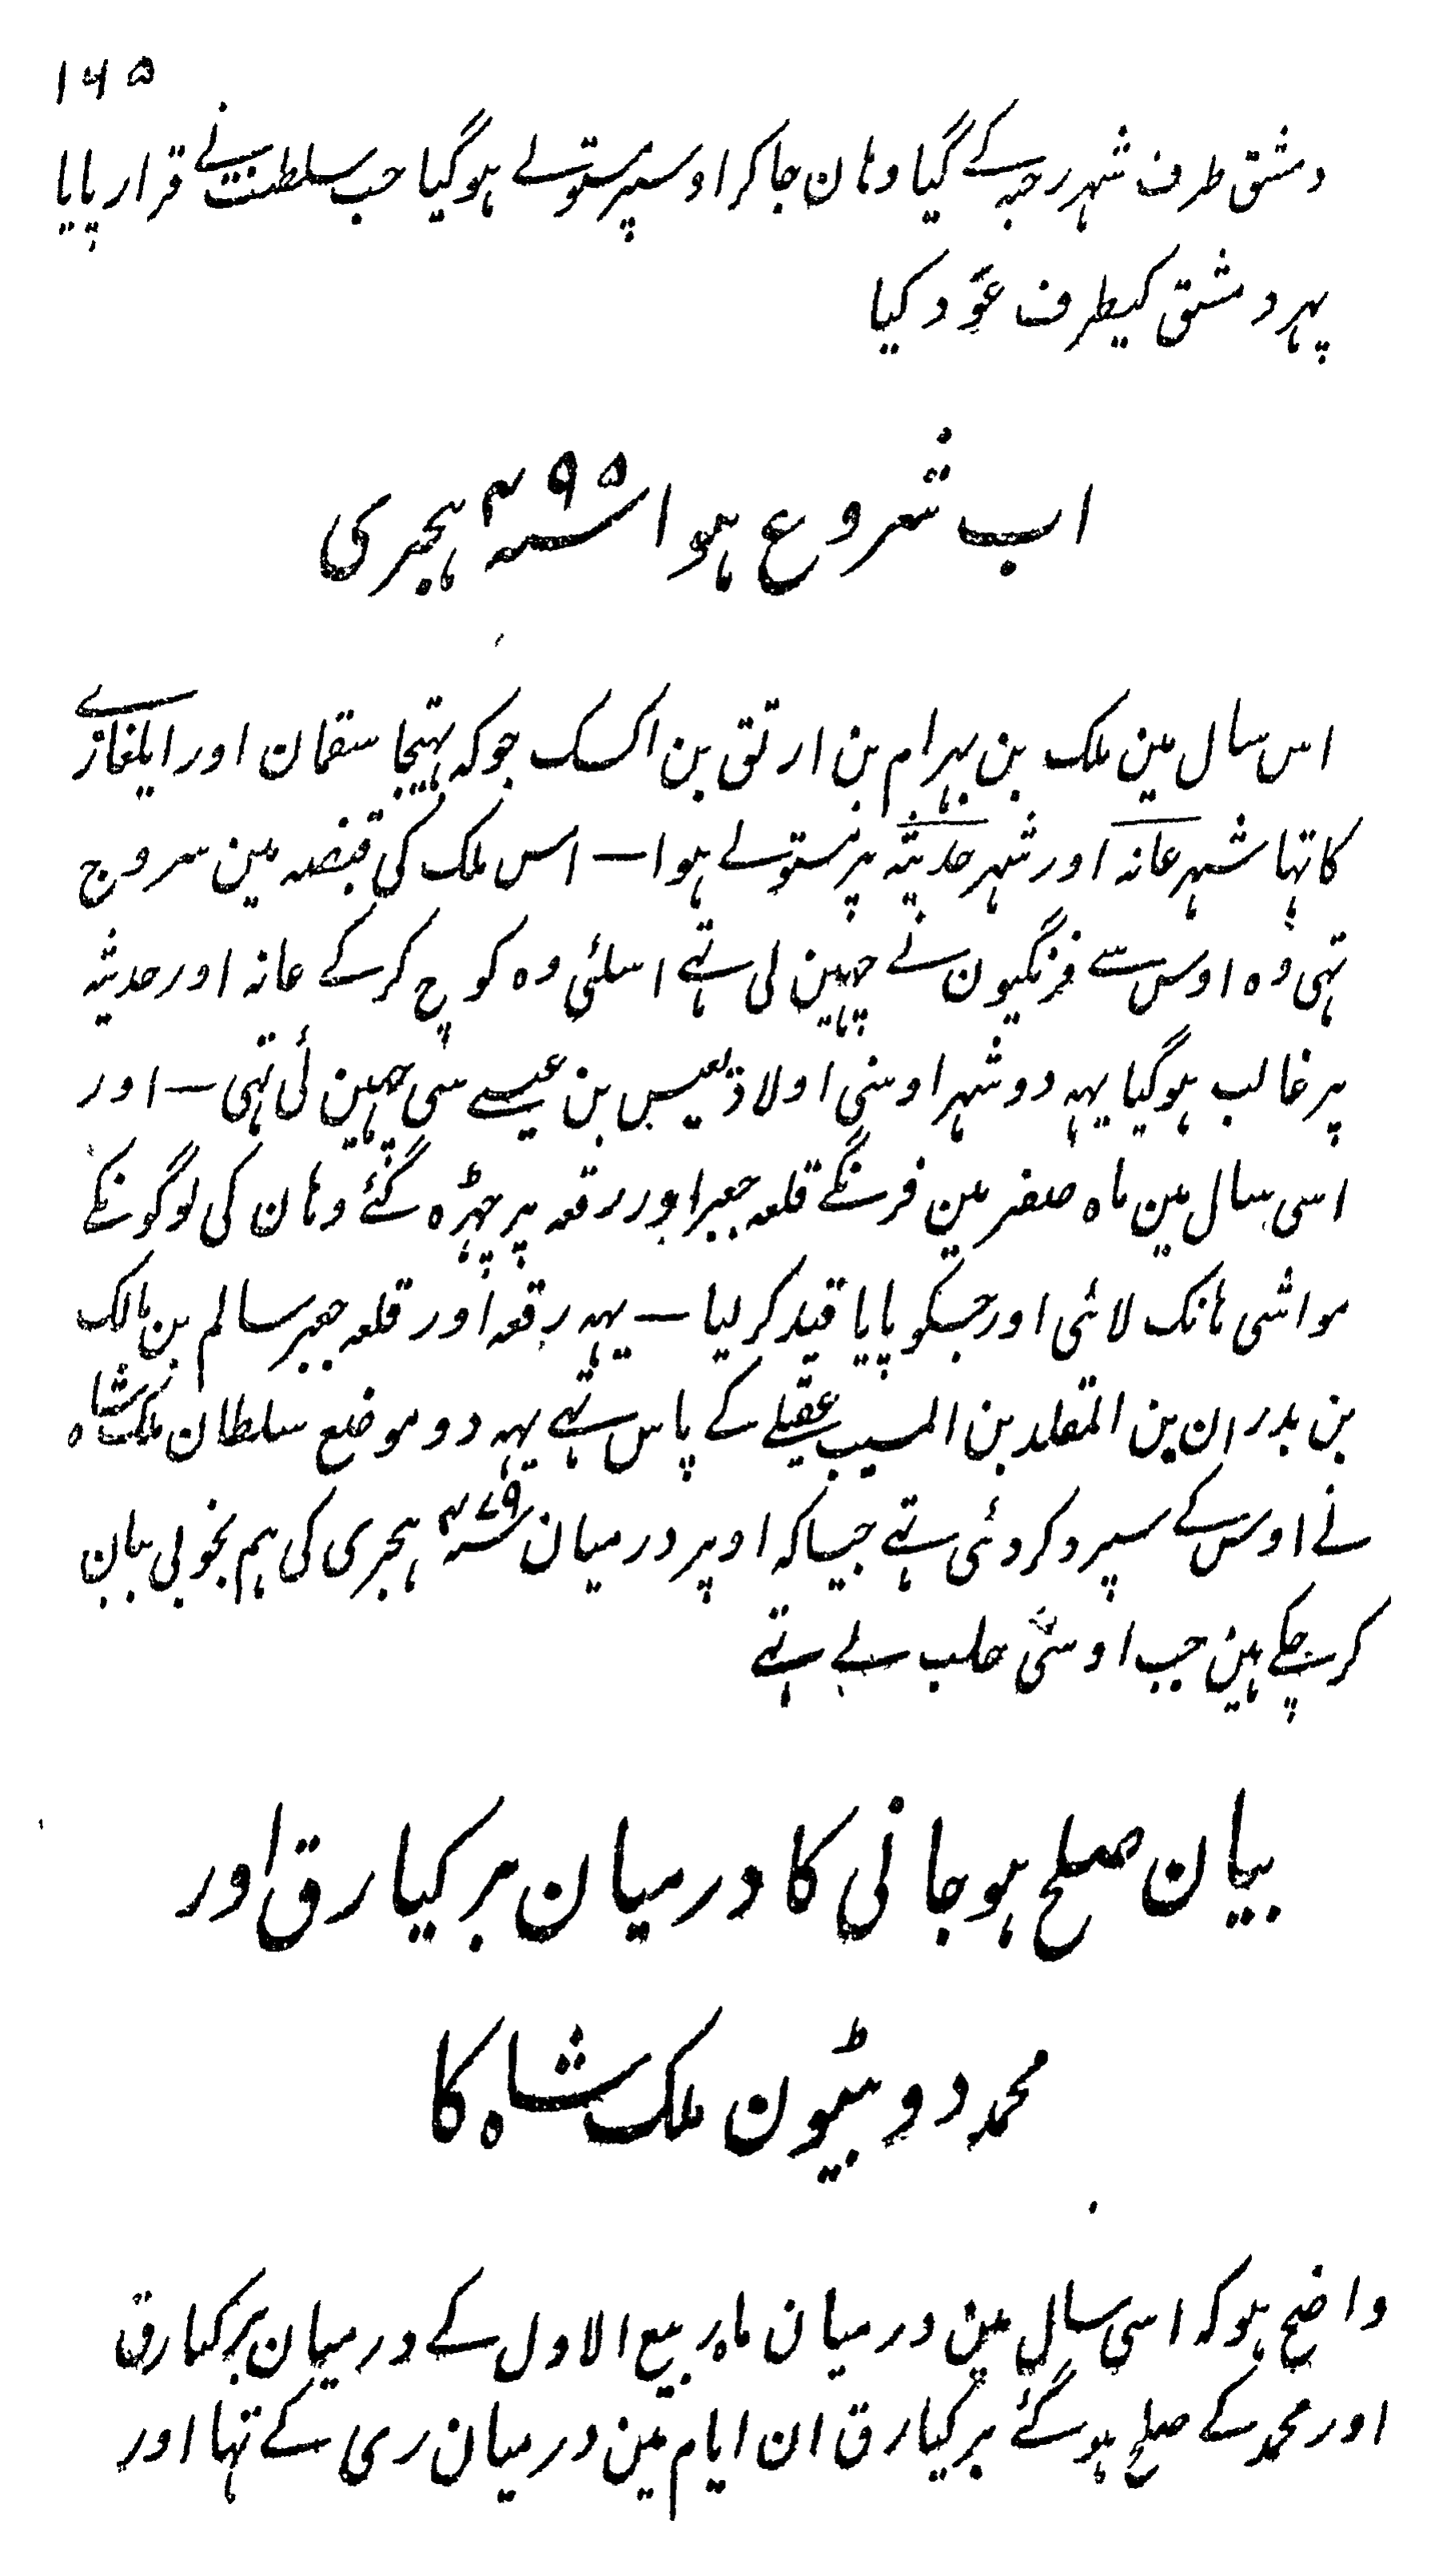 ۱۶۵
دمشق طرف شہر رحبہ کے گیا وہان جاکر اوسپر مستولے ہوگیا جب سلطنت نے قرار پایا
پہر دمشق کیطرف عود کیا
اب شروع ہوا سنہ ۴۹۵ ہجری
اس سال مین ملک بن بہرام بن ارتق بن اکسک جوکہ بہتیجا سقمان اور ایلغازے
کا تہا شہر عانہ اور شہر حدیثہ پر مستولے ہوا — اس ملک کی قبضہ مین سروج
تہی وہ اوس سے فرنگیون نے چہین لی تہے اسلئی وہ کوچ کرکے عانہ اور حدیثہ
پر غالب ہوگیا یہہ دو شہر اوسنی اولاد یعیس بن عیسے سی چہین لئی تہی — اور
اسی سال مین ماہ صفر مین فرنگے قلعہ جعبر اور رقعہ پر چہڑہ گئے وہان کی لوگونکے
مواشی ہانک لائی اور جسکو پایا قید کر لیا — یہہ رقعہ اور قلعہ جعبر سالم بن مالک
بن بدران بن المقلد بن المسیب عقیلے کے پاس تہے یہہ دو موضع سلطان ملک شاہ
نے اوس کے سپرد کردئی تہے جیسا کہ اوپر درمیان سنہ ۴۷۹ ہجری کی ہم بخوبی بیان
کر چکے ہین جب اوسنی حلب لے تہے
بیان صلح ہوجانی کا درمیان برکیارق اور
محمد دو بیٹون ملک شاہ کا
واضح ہو کہ اسی سال مین درمیان ماہ ربیع الاول کے درمیان برکیارق
اور محمد کے صلح ہوگئے برکیارق ان ایام مین درمیان ری کے تہا اور